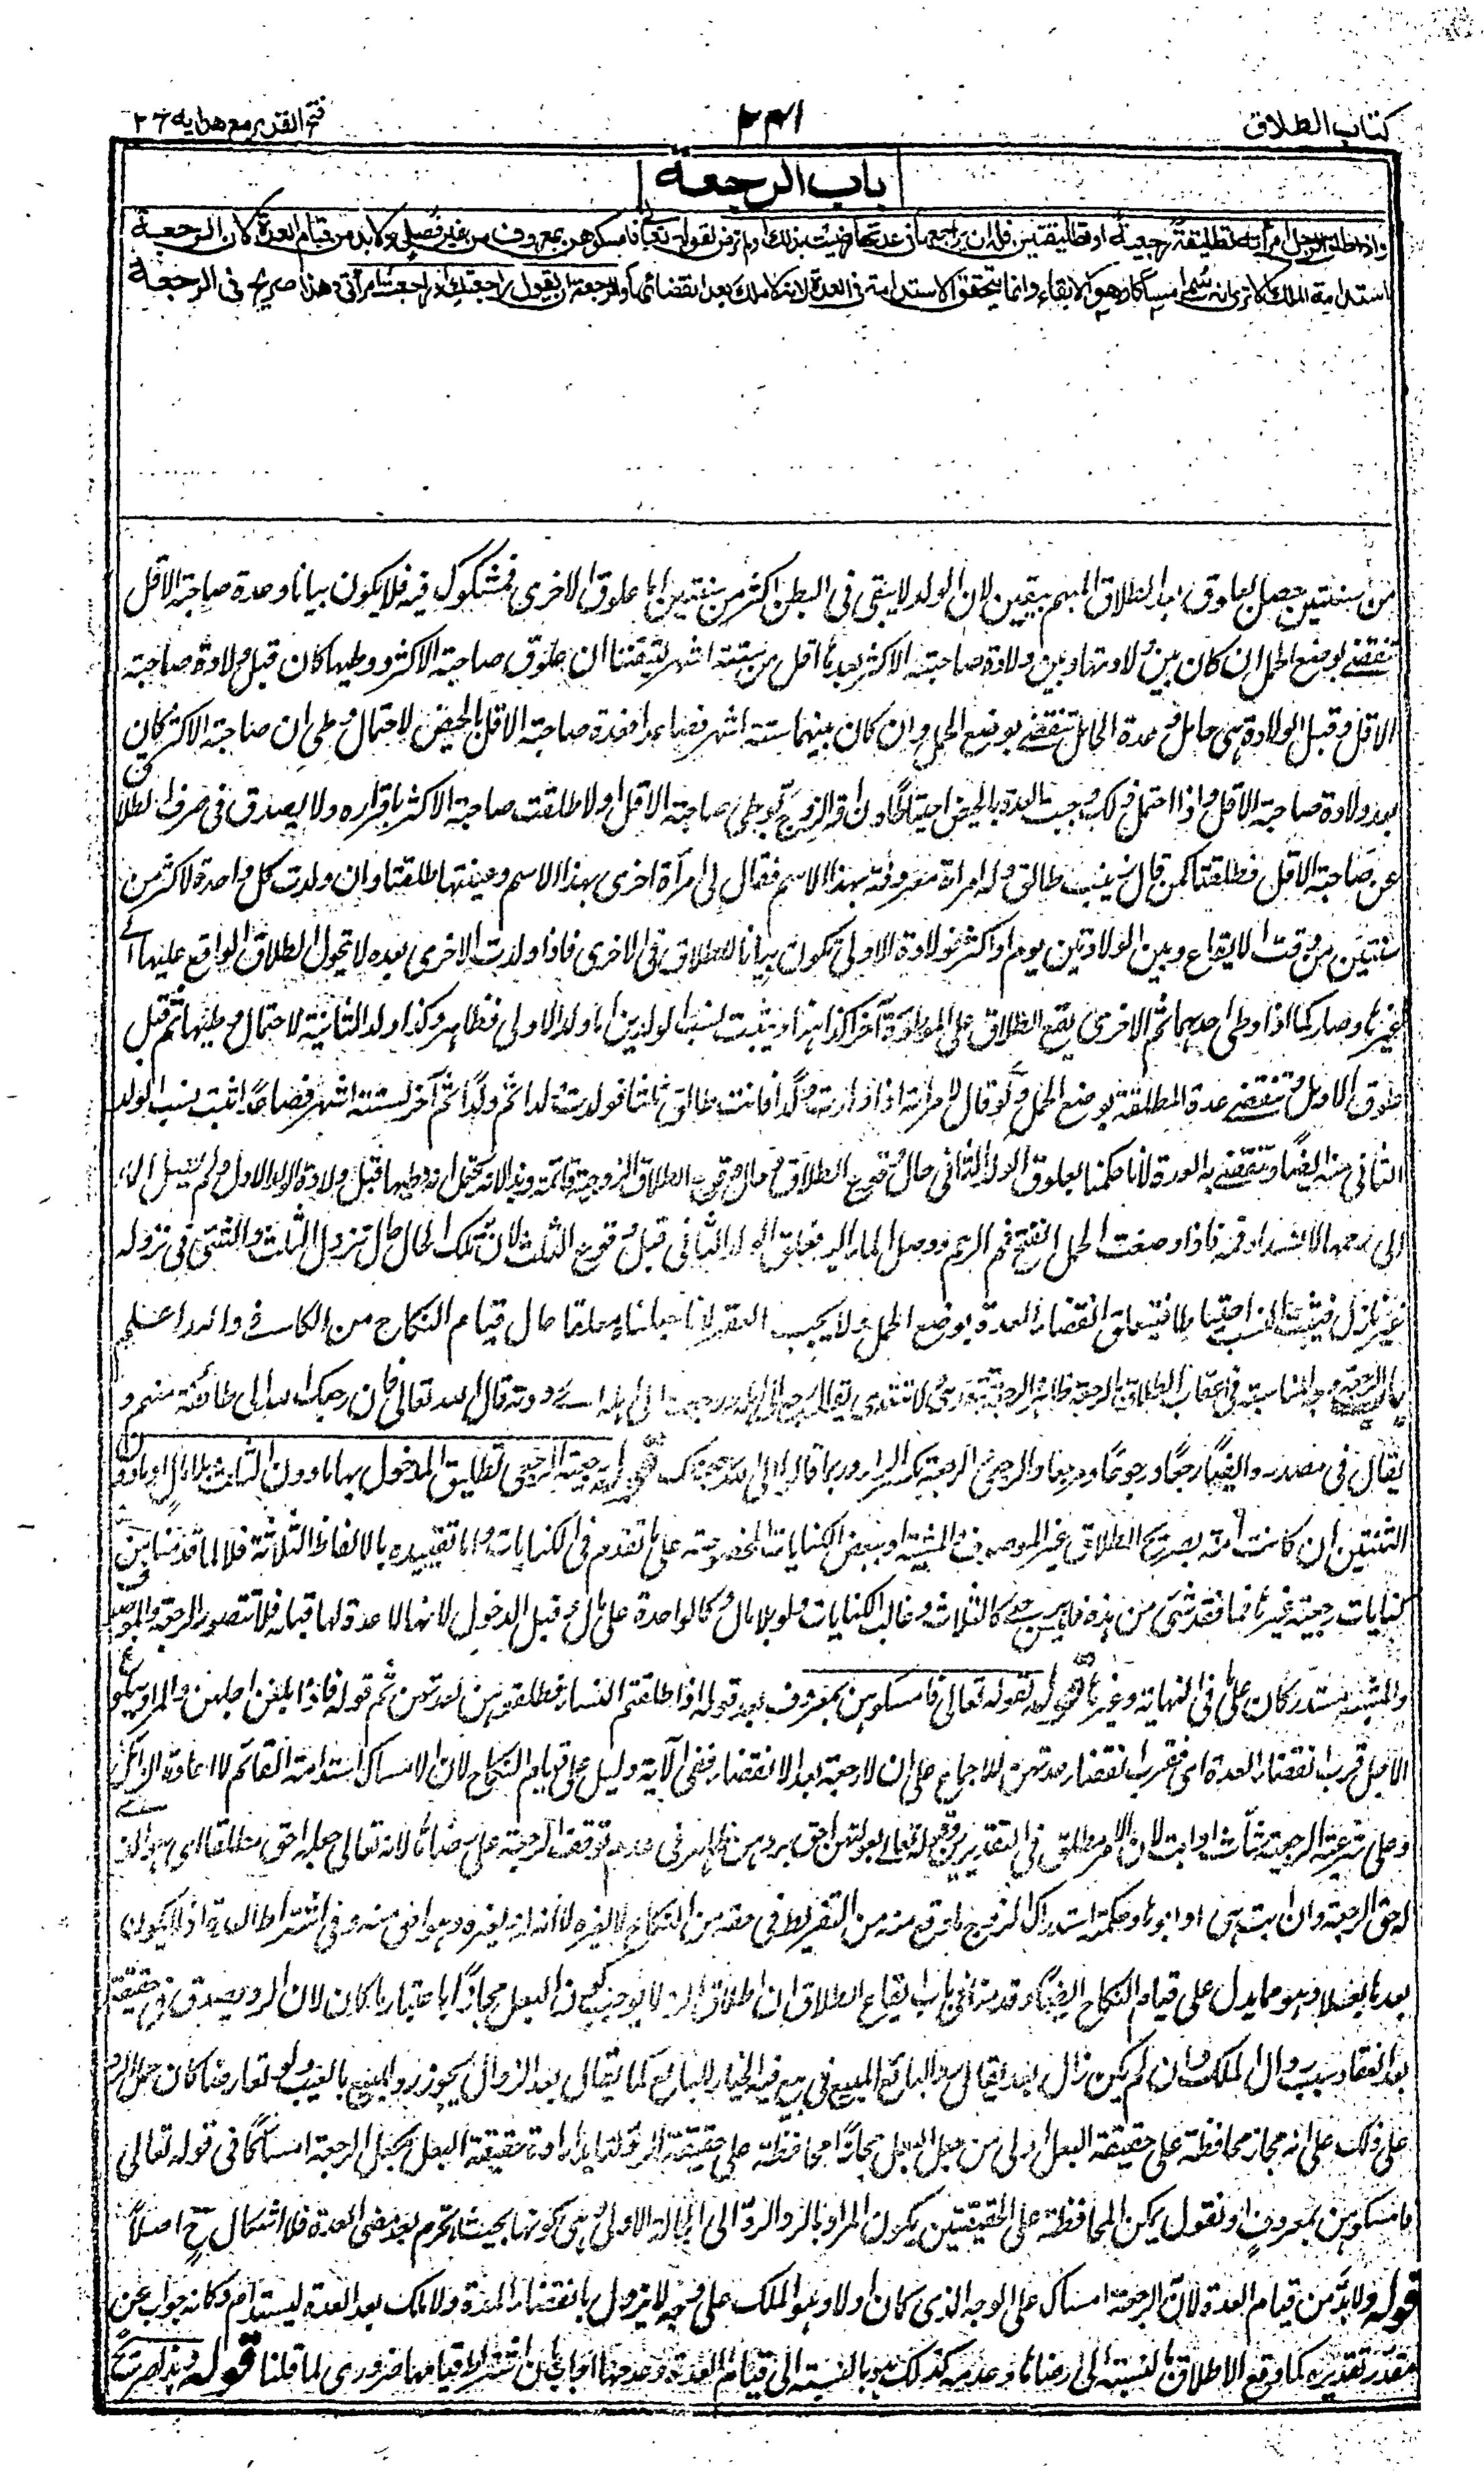 كتاب الطلاق
٢٤١
فتح القدير مع هدايه ج ٢
باب الرجعة
واذا طلق الرجل امرأته تطليقة رجعية او تطليقتين فله ان يراجعها فى عدتها رضيت بذلك او لم ترض لقوله تعالى فامسكوهن بمعروف من غير فصل ولا بد من قيام العدة لان الرجعة
استدامة الملك الا ترى انه سمى امساكا وهو الابقاء وانما يتحقق الاستدامة فى العدة لانه لا ملك بعد انقضائها والرجعة ان يقول راجعتك او راجعت امرأتى وهذا صريح فى الرجعة
من سنتين حصل لعلوق بعد الطلاق المبهم بيقين لان الولد لا يبقى فى البطن اكثر من سنتين اما علوق الاخرى فمشكوك فيه فلا يكون بيانا وعدة صاحبة الاقل
تنقضے بوضع الحمل ان كان بين ولادتها وبين ولادة صاحبة الاكثر بعدها اقل من ستة اشهر لتيقننا ان علوق صاحبة الاكثر ووطيها كان قبل ولادة صاحبة
الاقل وقبل الولادة هى حامل وعدة الحامل تنقضے بوضع الحمل وان كان بينهما ستة اشهر فصاعدا فعدة صاحبة الاقل بالحيض لاحتمال وطى ان صاحبة الاكثر كان
بعد ولادة صاحبة الاقل واذا احتمل ذلك وجبت العدة بالحيض احتياطا وان اقر الزوج بوطى صاحبة الاقل اولا طلقت صاحبة الاكثر باقراره ولا يصدق فى صرف الطلاق
عن صاحبة الاقل فطلقتا كمن قال زينب طالق وله امراة معروفة بهذا الاسم فقال لى امرأة اخرى بهذا الاسم وعينتها طلقتا وان ولدت كل واحدة لاكثر من
سنتين من وقت الايقاع وبين الولادتين يوم او اكثر فولادة الاولى تكون بيانا للطلاق فى الاخرى فاذا ولدت الاخرى بعده لا يتحول الطلاق الواقع عليها الے
غيرها وصار كما اذا وطى احدهما ثم الاخرى يقع الطلاق على الموطوءة آخرا كذا هذا ويثبت نسب الولدين اما ولد الاولى فظاهر وكذا ولد الثانية لاحتمال وطيها ثم قبل
علوق الاولى وتنقضے عدة المطلقة بوضع الحمل ولو قال لامرأته اذا ولدت ولدا فانت طالق ثلثا فولدت ولدا ثم ولدا ثم آخر لستة اشهر فصاعدا ثبت نسب الولد
الثانى منه ايضا وتنقضے به العدة لانا حكمنا بعلوق الولد الثانى حال وقوع الطلاق وحال وقوع الطلاق الزوجية قائمة وهذا لانه يحتمل انه وطيها قبل ولادة الولد الاول ولم يصل الماء
الى رحمها لانسداد فمه فاذا وضعت الحمل انفتح فم الرحم ووصل الماء اليه فعلق الولد الثانى قبل وقوع الثلث لان تلك الحال حال نزول الثلث والشئ فى نزوله
غير نازل فيثبت النسب احتياطا فيتعلق انقضاء العدة بوضع الحمل ولا يجب العقر لانا جعلناه معلقا حال قيام النكاح من الكافے والله اعلم
باب الرجعة وجه المناسبة فى اعقاب الطلاق الرجعة ظاهر الرجعة تتعدى ولا تتعدى يقال رجع الى اهله ورجعته الى اهله اے رددته قال الله تعالى فان رجعك الله الى طائفة منهم و
يقال فى مصدره ايضا رجعا ورجوعا ومرجعا والرجعى الرجعة بكسر الراء وربما قالوا الى الله رجعتك قوله رجعية الرجعى تطليق المدخول بها ما دون الثلث بلا مال او ما دون
الثنتين ان كانت امة بصريح الطلاق غير الموصوف والمشبه او ببعض الكنايات المخصوصة على ما تقدم فى الكنايات واما تقييده بالالفاظ الثلاثة فلا لما قدمنا من
كنايات رجعية غيرها فما فقد شئ من هذه فليس برجعے كالثلاث وغالب الكنايات ولو بلا مال وكالواحدة على مال وقبل الدخول لانها لا عدة لها قبله فلا تتصور الرجعة والموصوف
والمشبه مستدركان على ما فى النهاية وغيرها قوله لقوله تعالى فامسكوهن بمعروف بعد قوله اذا طلقتم النساء فطلقوهن لعدتهن ثم قوله فاذا بلغن اجلهن والمراد ببلوغ
الاجل قرب انقضاء العدة اى فقرب انقضاء عدتهن للاجماع على ان لا رجعة بعد الانقضاء ففى الآية دليل على قيام النكاح لان الامساك استدامة القائم لا اعادة الزائل
وعلى شرعية الرجعة شاءت او ابت لان الامر مطلق فى التقديرين وقوله تعالى وبعولتهن احق بردهن ظاهر فى عدم توقف الرجعة على رضاها لانه تعالى جعله احق مطلقا اى هو الذے
له حق الرجعة وان ابت هى او ابوها وحكمة استدراك الزوج ما وقع منه من التفريط فى حقه من النكاح
بعدها بعلا وهو مما يدل على قيام النكاح ايضا وقد منا فى باب ايقاع الطلاق ان اطلاق الرد لا يوجب كون البعل مجازا باعتبار ما كان لان الرد يصدق حقيقة
بعد انعقاد سبب زوال الملك وان لم يكن زال بعد يقال رد البائع المبيع فى بيع فيه الخيار للبائع كما يقال بعد الزوال يجوز رد المبيع بالعيب ولو تعارضا كان حمل الرد
على ذلك على انه مجاز محافظة على حقيقة البعل اولى من جعل البعل مجازا محافظة على حقيقة الرد لتايد ارادة حقيقة البعل بجعل الرجعة امساكا فى قوله تعالى
فامسكوهن بمعروف او نقول يمكن المحافظة على الحقيقتين بكون المراد بالرد الرد الى الحالة الاولى وهى كونها بحيث لا تحرم بعد مضى العدة فلا اشكال ح اصلا
قوله ولا بد من قيام العدة لان الرجعة امساك على الوجه الذى كان اولا وهو الملك على وجه لا يزول بانقضاء المدة ولا ملك بعد العدة ليستدام وكانه جواب عن
مقدر تقديره كما وقع الاطلاق بالنسبة الى رضاها وعدمه كذلك هو بالنسبة الى قيام العدة وعدمها اجاب بان اشتراط قيامها ضرورى لما قلنا قوله وهذا صريح